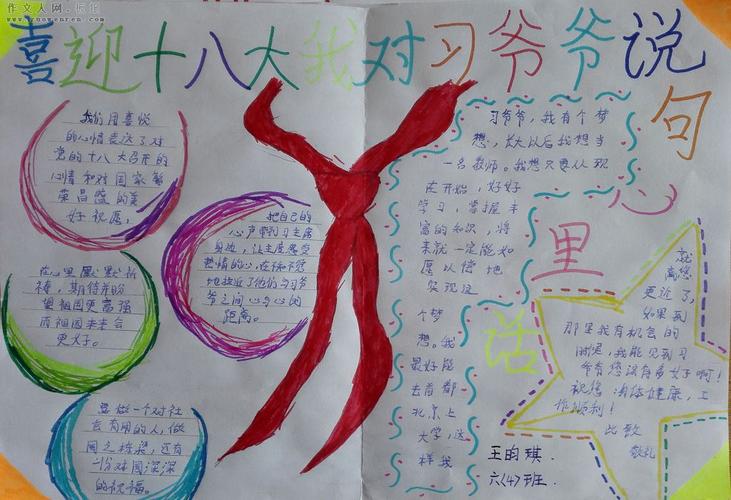 作文人网.标华
www.zuowenren.com
喜迎十八大我对习爷爷说
句
心
里
话
我们用喜悦
的心情表达了对
党的十八大召开的
心情和对国家繁
荣昌盛的美
好祝愿,
在心里默默祈
祷,期待并盼
望祖国更富强
而祖国未来会
更好。
要做一个对社
会有用的人,做
国之栋梁,还有
一份对国深深
的祝福。
把自己的
心声带到习主席
身边,让主席感受
热情的心,在你不觉
地拉近了他们与习爷
爷之间心与心的
距离。
习爷爷,我有个梦
想,长大以后我想当
一名教师。我想只要从现
在开始,好好
学习,掌握丰
富的知识,将
来就一定能如
愿以偿地
实现这
个梦
想。我
最好能
去首都
北京上
大学,这
样我
就
离您
更近了,
如果到
那里我有机会的
时候,我能见到习
爷爷您该有多好啊!
祝您 身体健康,工
作顺利!
此致
敬礼
王昀琪.
六(4)班.